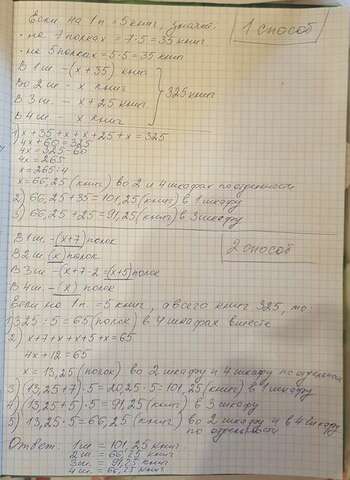 Если на 1 п = 5 книг, значит
1 способ
- на 7 полках = 7·5 = 35 книг
- на 5 полках = 5·5 = 35 книг
В 1 ш - (x + 35) книг
Во 2 ш - x книг
В 3 ш - x + 25 книг
В 4 ш - x книг
325 книг
1) x + 35 + x + x + 25 + x = 325
4x + 60 = 325
4x = 325 - 60
4x = 265
x = 265 : 4
x = 66,25 (книг) во 2 и 4 шкафах по отдельности
2) 66,25 + 35 = 101,25 (книг) в 1 шкафу
3) 66,25 + 25 = 91,25 (книг) в 3 шкафу
В 1 ш - (x+7) полок
2 способ
В 2 ш (x) полок
В 3 ш - (x+7-2 = (x+5) полок
В 4 ш - (x) полок
Если на 1 п = 5 книг, а всего книг 325, то:
1) 325 : 5 = 65 (полок) в 4 шкафах вместе
2) x + 7 + x + x + 5 + x = 65
4x + 12 = 65
x = 13,25 (полок) во 2 шкафу и 4 шкафу по отдельн
3) (13,25 + 7) · 5 = 20,25 · 5 = 101,25 (книг) в 1 шкафу
4) (13,25 + 5) · 5 = 91,25 (книг) в 3 шкафу
5) 13,25 · 5 = 66,25 (книг) во 2 шкафу и в 4 шкафу
по отдельности
Ответ: 1 ш = 101,25 книг
2 ш = 66,25 книг
3 ш = 91,25 книг
4 ш = 66,25 книг